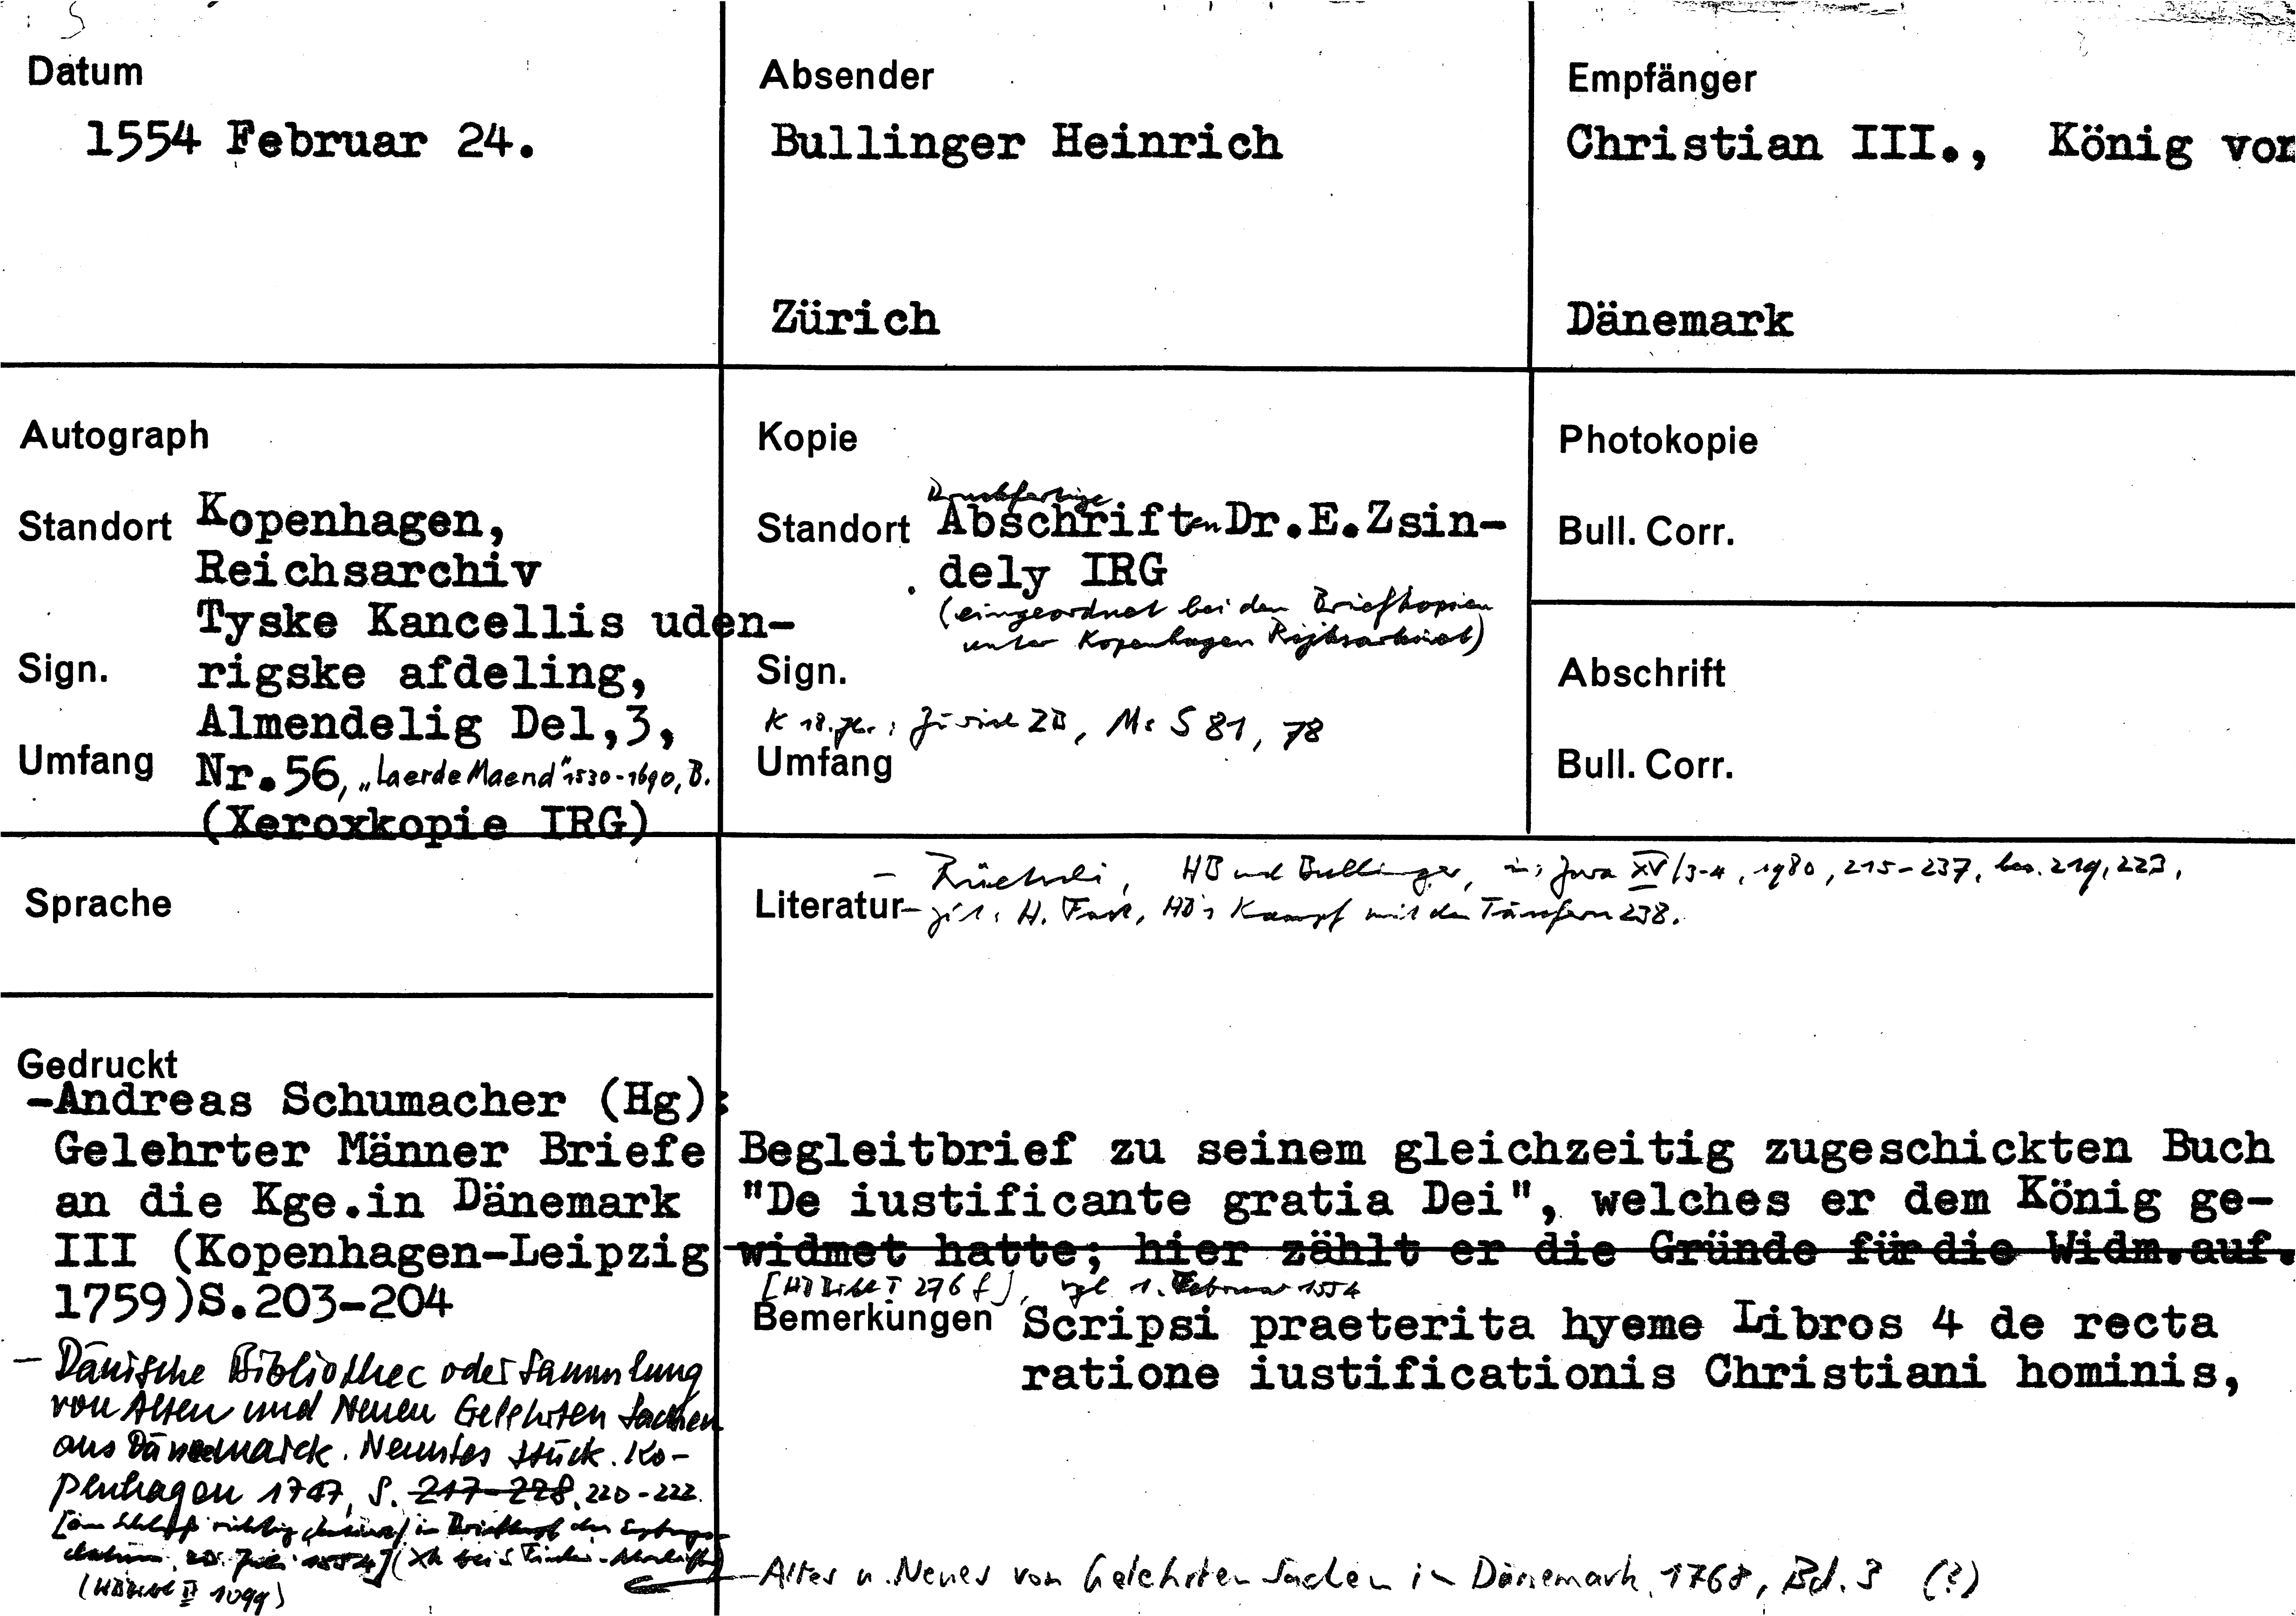 Datum
1554 Februar 24.
Absender
Bullinger Heinrich
Zürich
Empfänger
Christian III., König von
Dänemark
Autograph
Standort Kopenhagen,
Reichsarchiv
Tyske Kancellis uden-
Sign. rigske afdeling,
Almendelig Del,3,
Umfang Nr.56, „Laerde Maend" 1530-1690, B.
(Xeroxkopie IRG)
Kopie
Druckfertige
Standort Abschriften Dr.E.Zsin-
dely IRG
(eingeordnet bei den Briefkopien
unter Kopenhagen Rijksarkivet)
Sign.
K 18. Jh.: Zürich ZB, Ms S 81, 78
Umfang
Photokopie
Bull. Corr.
Abschrift
Bull. Corr.
Sprache
Literatur
- HB und Bullinger, in: Jura XV/3-4, 1980, 215-237, bes. 219, 223,
- zit.: H. Fast, HB's Kampf mit den Täufern 238.
Gedruckt
-Andreas Schumacher (Hg):
Gelehrter Männer Briefe
an die Kge.in Dänemark
III (Kopenhagen-Leipzig
1759)S.203-204
- Dänische Bibliothec oder Sammlung
von Alten und Neuen Gelehrten Sachen
aus Dännemarck. Neuntes Stück. Ko-
penhagen 1747, S. 217-228, 220-222.
[am Schluss richtig datiert / im Briefkopf das
datum, 20. Juli 1554]
(HBBibl II 1099)
Begleitbrief zu seinem gleichzeitig zugeschickten Buch
"De iustificante gratia Dei", welches er dem König ge-
widmet hatte; hier zählt er die Gründe für die Widm.auf.
[HBBibl I 276 f], vgl. 1. Februar 1554
Bemerkungen Scripsi praeterita hyeme Libros 4 de recta
ratione iustificationis Christiani hominis,
- Altes u. Neues von Gelehrten Sachen in Dänemark, 1768, Bd. 3 (?)